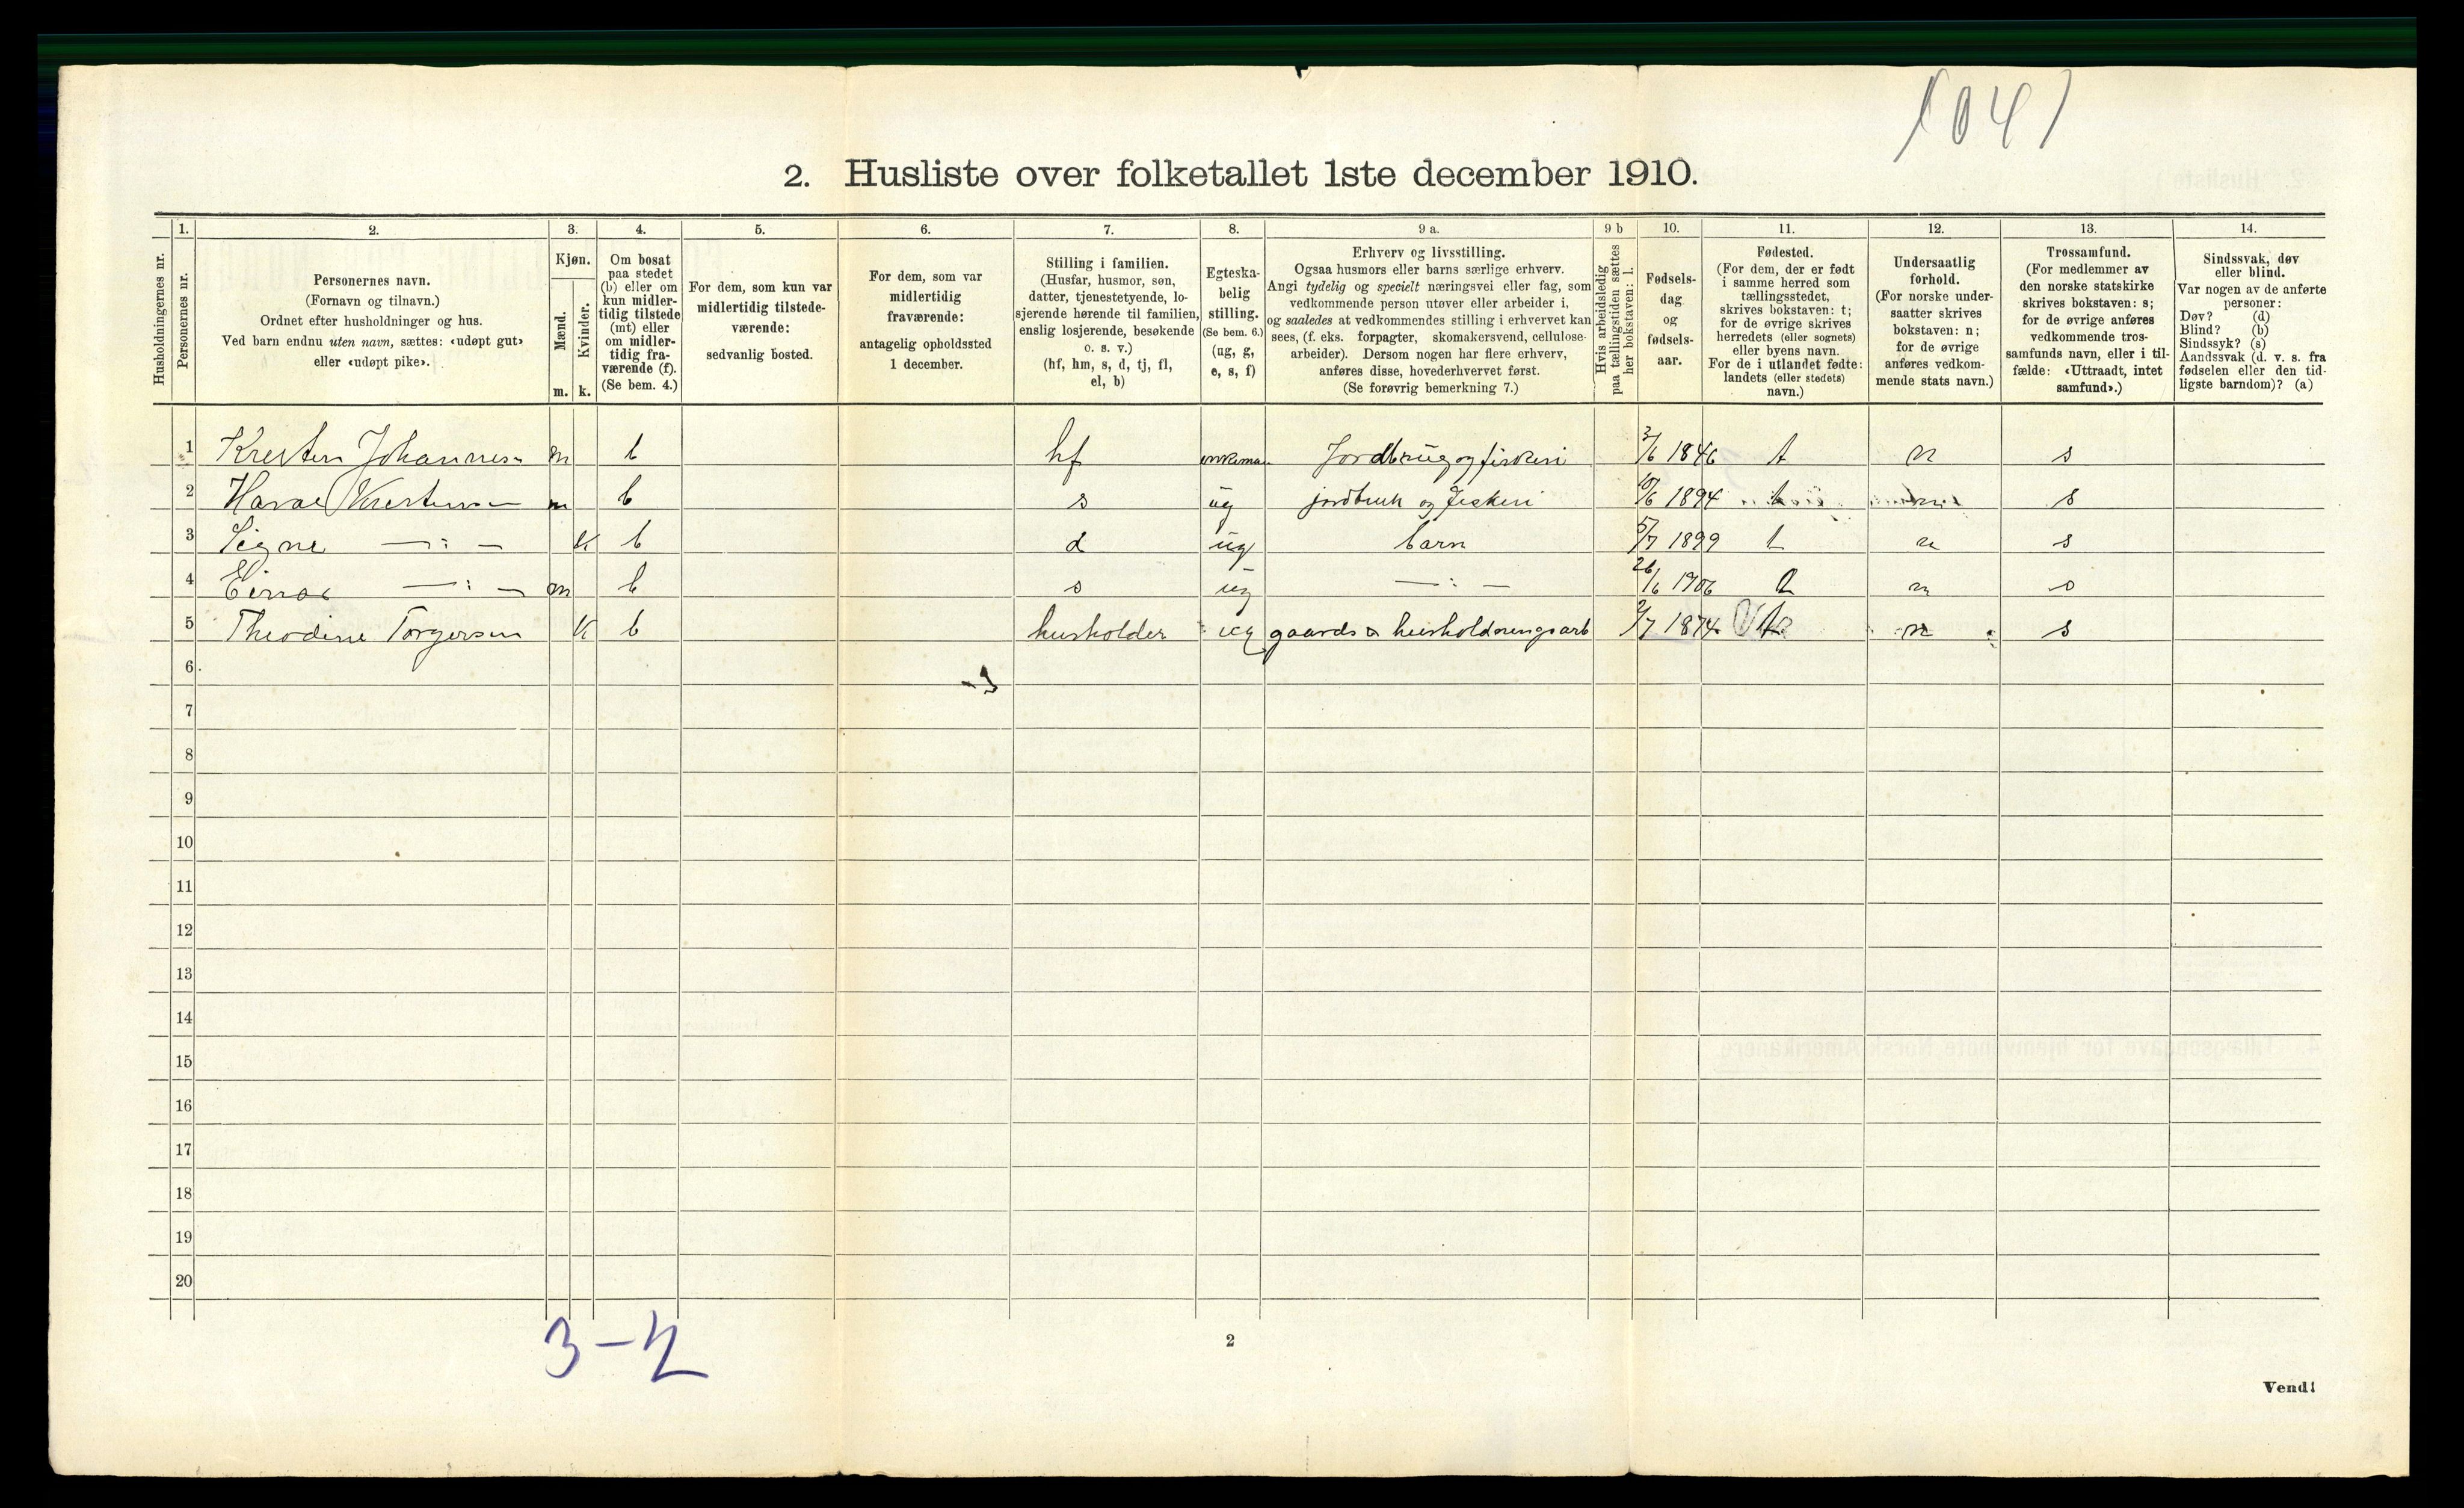 1041
2. Husliste over folketallet 1ste december 1910.
Husholdningernes nr.
1.
Personernes nr.
2.
Personernes navn.
(Fornavn og tilnavn.)
Ordnet efter husholdninger og hus.
Ved barn endnu uten navn, sættes: «udøpt gut»
eller «udøpt pike».
3.
Kjøn.
Mænd.
Kvinder.
m. k.
4.
Om bosat
paa stedet
(b) eller om
kun midler-
tidig tilstede
(mt) eller
om midler-
tidig fra-
værende (f).
(Se bem. 4.)
5.
For dem, som kun var
midlertidig tilstede-
værende:
sedvanlig bosted.
6.
For dem, som var
midlertidig
fraværende:
antagelig opholdssted
1 december.
7.
Stilling i familien.
(Husfar, husmor, søn,
datter, tjenestetyende, lo-
sjerende hørende til familien,
enslig losjerende, besøkende
o. s. v.)
(hf, hm, s, d, tj, fl,
el, b)
8.
Egteska-
belig
stilling.
(Se bem. 6.)
(ug, g,
e, s, f)
9 a.
Erhverv og livsstilling.
Ogsaa husmors eller barns særlige erhverv.
Angi tydelig og specielt næringsvei eller fag, som
vedkommende person utøver eller arbeider i,
og saaledes at vedkommendes stilling i erhvervet kan
sees, (f. eks. forpagter, skomakersvend, cellulose-
arbeider). Dersom nogen har flere erhverv,
anføres disse, hovederhvervet først.
(Se forøvrig bemerkning 7.)
9 b
Hvis arbeidsledig
paa tællingstiden sættes
her bokstaven: l.
10.
Fødsels-
dag
og
fødsels-
aar.
11.
Fødested.
(For dem, der er født
i samme herred som
tællingsstedet,
skrives bokstaven: t;
for de øvrige skrives
herredets (eller sognets)
eller byens navn.
For de i utlandet fødte:
landets (eller stedets)
navn.)
12.
Undersaatlig
forhold.
(For norske under-
saatter skrives
bokstaven: n;
for de øvrige
anføres vedkom-
mende stats navn.)
13.
Trossamfund.
(For medlemmer av
den norske statskirke
skrives bokstaven: s;
for de øvrige anføres
vedkommende tros-
samfunds navn, eller i til-
fælde: «Uttraadt, intet
samfund».)
14.
Sindssvak, døv
eller blind.
Var nogen av de anførte
personer:
Døv? (d)
Blind? (b)
Sindssyk? (s)
Aandssvak (d. v. s. fra
fødselen eller den tid-
ligste barndom)? (a)
1 Kresten Johannes m b hf enkeman Jordbrug og fiskeri 3/6 1846 t n s
2 Haral Kristensen m b s ug jordbruk og fiskeri 10/6 1894 t n s
3 Signe —:— k b d ug barn 5/7 1899 t n s
4 Einar —:— m b s ug —:— 26/6 1906 t n s
5 Theodine Torgersen k b husholder ug gaards & husholdningsarb 2/7 1874 t n s
6
7
8
9
10
11
12
13
14
15
16
17
18
19
20
3-2
2
Vend!